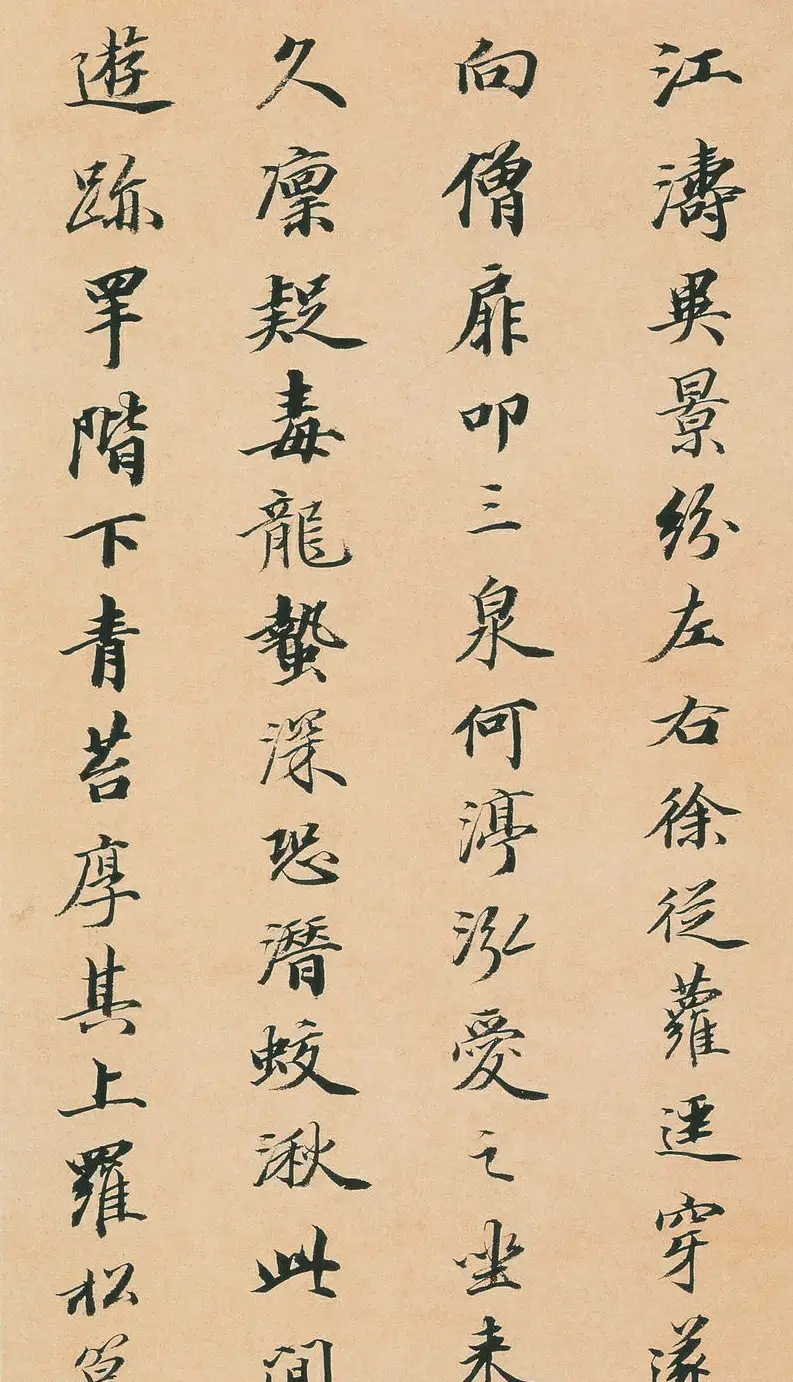 江濤異景紛左右徐從蘿逕穿遂
向僧扉叩三泉何渟泓愛之坐来
久凛疑毒龍蟄深恐潛蛟湫此間
遊跡罕階下青苔厚其上羅松筠